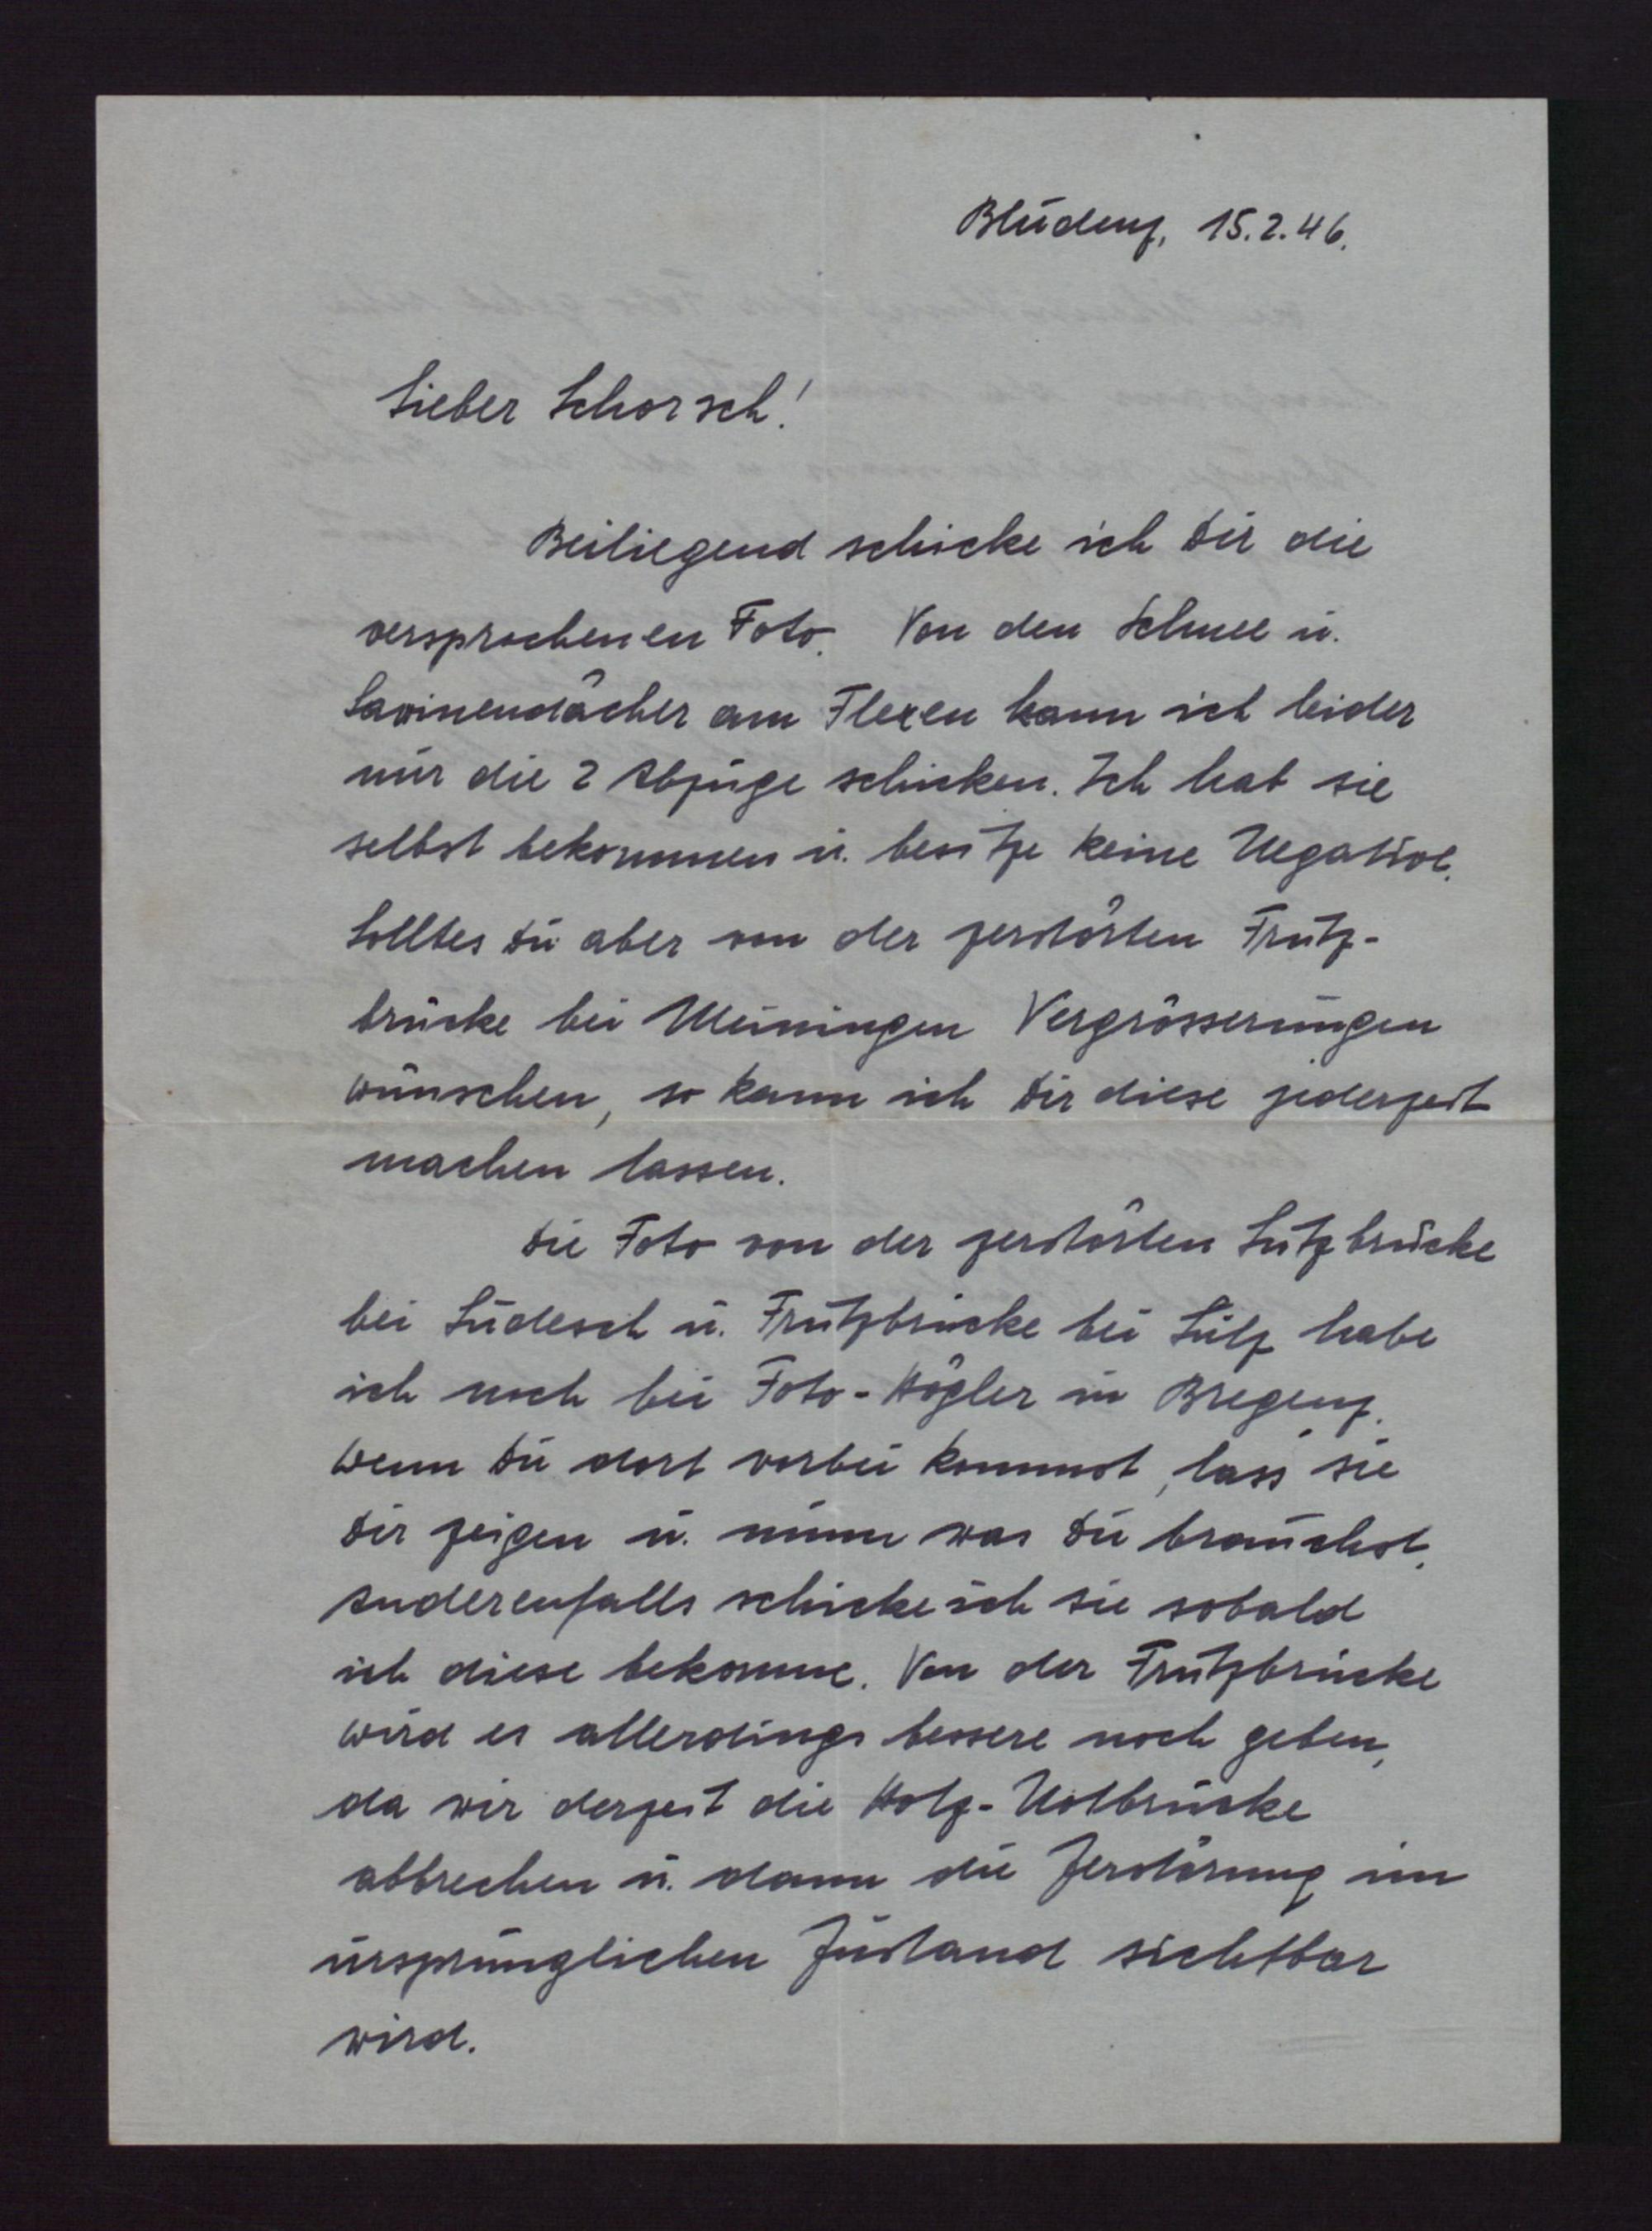 Bludenz, 15.2.46.
Lieber Schorsch!
Beiliegend schicke ich Dir die
versprochenen Foto. Von den Schnee u.
Lavinendächer am Flexen kann ich leider
nur die 2 Abzüge schicken. Ich hab sie
selbst bekommen u. besitze keine Negative.
Solltes Du aber von der zerstörten Frutz-
brücke bei Meiningen Vergrösserungen
wünschen, so kann ich Dir diese jederzeit
machen lassen.
Die Foto von der zerstörten Lutzbrücke
bei Ludesch u. Frutzbrücke bei Sulz habe
ich noch bei Foto-Högler in Bregenz.
Wenn Du dort vorbei kommst, lass sie
Dir zeigen u. nimm was Du brauchst.
Anderenfalls schicke ich sie sobald
ich diese bekomme. Von der Frutzbrücke
wird es allerdings bessere noch geben,
da wir derzeit die Holz-Notbrücke
abbrechen u. dann die Zerstörung im
ursprünglichen Zustand sichtbar
wird.